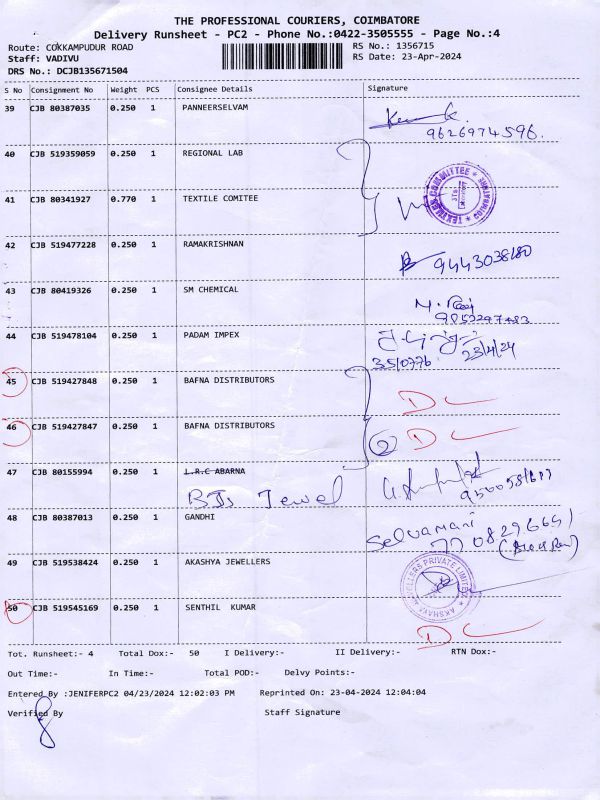 THE PROFESSIONAL COURIERS, COIMBATORE
Delivery Runsheet - PC2 - Phone No.:0422-3505555 - Page No.:4
Route: COKKAMPUDUR ROAD RS No.: 1356715
Staff: VADIVU RS Date: 23-Apr-2024
DRS No.: DCJB135671504
S No Consignment No Weight PCS Consignee Details Signature
39 CJB 80387035 0.250 1 PANNEERSELVAM
9626974596.
40 CJB 519359059 0.250 1 REGIONAL LAB
41 CJB 80341927 0.770 1 TEXTILE COMITEE
TEXTILES COMMITTEE COIMBATORE
42 CJB 519477228 0.250 1 RAMAKRISHNAN
9443038180
43 CJB 80419326 0.250 1 SM CHEMICAL
44 CJB 519478104 0.250 1 PADAM IMPEX
23/4/24
45 CJB 519427848 0.250 1 BAFNA DISTRIBUTORS D
46 CJB 519427847 0.250 1 BAFNA DISTRIBUTORS 2 D
47 CJB 80155994 0.250 1 L.R.C ABARNA
Jewel
48 CJB 80387013 0.250 1 GANDHI Selvamani
49 CJB 519538424 0.250 1 AKASHYA JEWELLERS
AKSHAYA JEWELLERS PRIVATE LIMITED
50 CJB 519545169 0.250 1 SENTHIL KUMAR
D
Tot. Runsheet:- 4 Total Dox:- 50 I Delivery:- II Delivery:- RTN Dox:-
Out Time:- In Time:- Total POD:- Delvy Points:-
Entered By :JENIFERPC2 04/23/2024 12:02:03 PM Reprinted On: 23-04-2024 12:04:04
Verified By Staff Signature